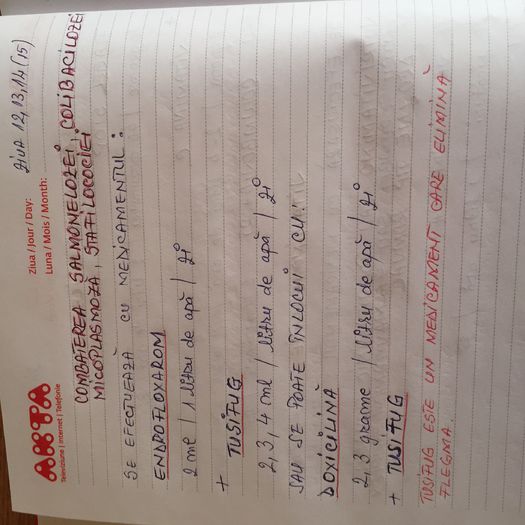 AKTA
Televiziune | Internet | Telefonie
Ziua / Jour / Day:
Luna / Mois / Month:
ZIUA 12, 13, 14 (15)
COMBATEREA SALMONELOZEI, COLIBACILOZEI
MICOPLASMOZA, STAFILOCOCIEI
SE EFECTUEAZĂ CU MEDICAMENTUL:
ENDROFLOXAROM
2 ml / 1 litru de apă / zi
+ TUSIFUG
2, 3, 4 ml / litru de apă / zi
SAU SE POATE ÎNLOCUI CU:
DOXICILINĂ
2, 3 grame / litru de apă / zi
+ TUSIFUG
TUSIFUG ESTE UN MEDICAMENT CARE ELIMINĂ
FLEGMA.